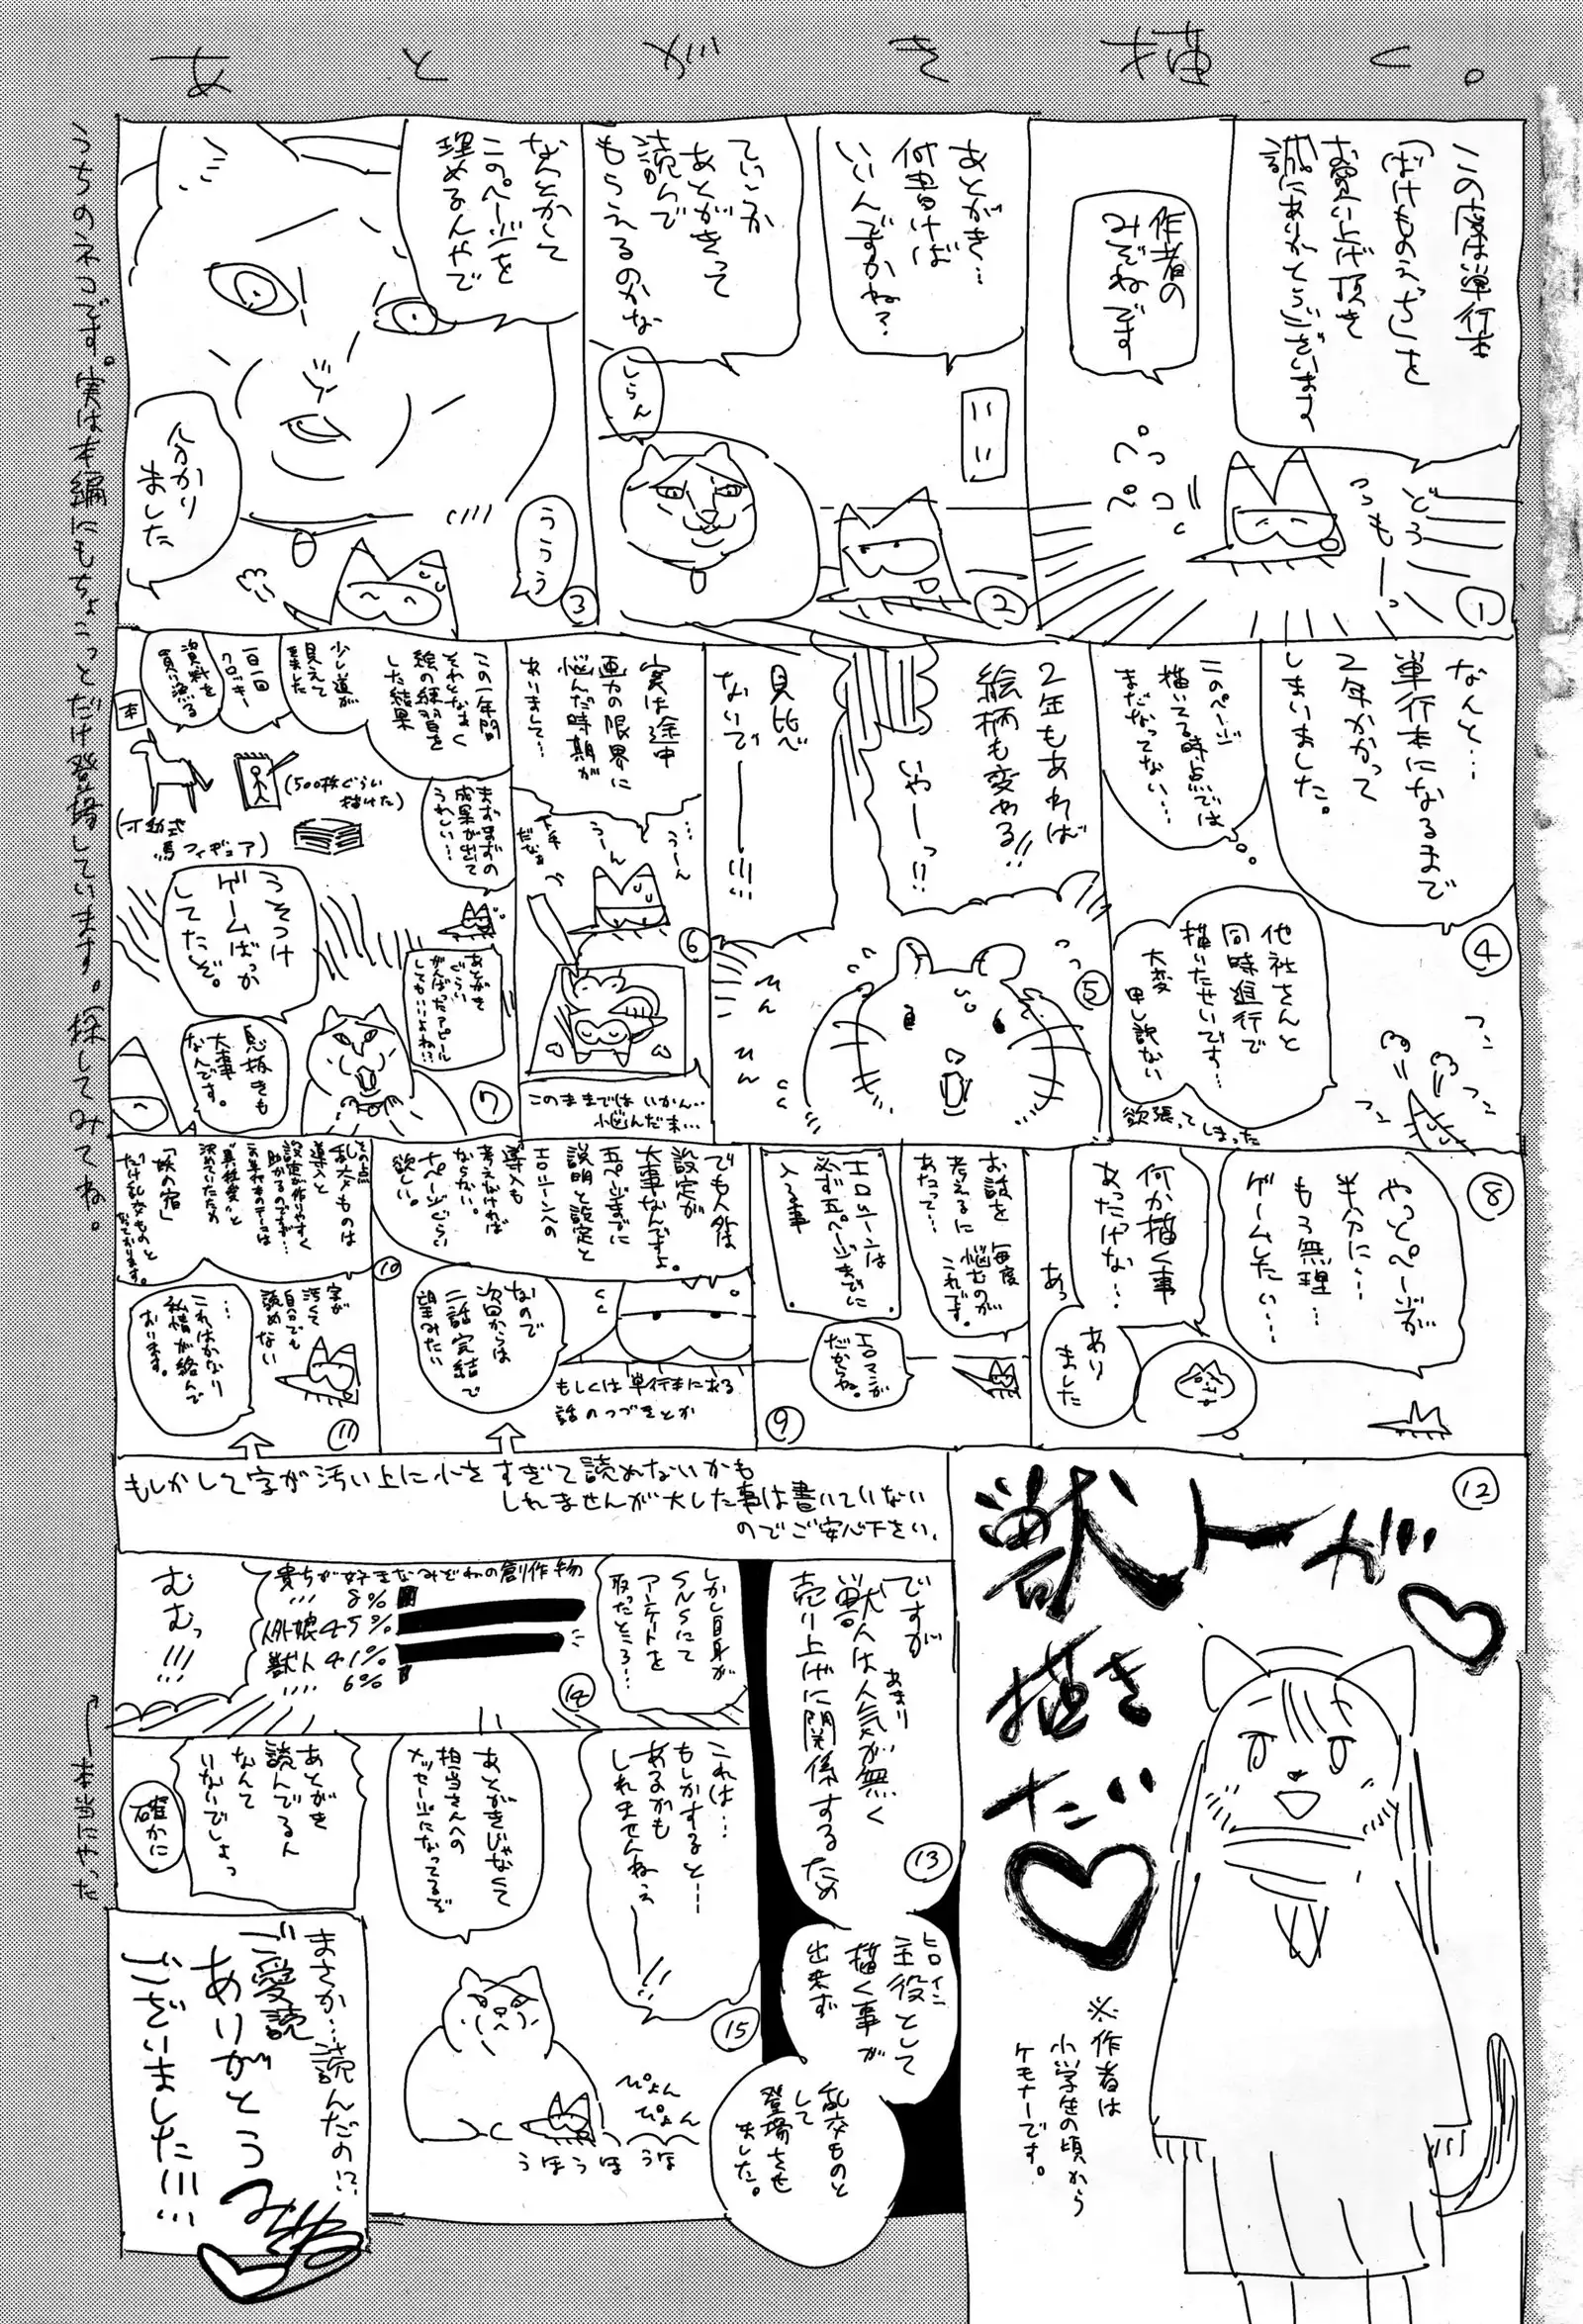 あとがき描く。
この度は単行本
「ばけものえっち」を
お買い上げ頂き
誠にありがとうございます
作者の
みぞねです
どうもーっ
ペっ
ペコ
①
あとがき…
何書けば
いいんですかね?
ていうか
あとがきって
読んで
もらえるのかな
しらん
②
なんとかして
このページを
埋めるんやで
ううう
分かり
ました
③
なんと…
単行本になるまで
2年かかって
しまいました。
このページ
描いてる時点では
まだなってない…
他社さんと
同時進行で
描いたせいです…
大変
申し訳ない
欲張ってしまった
④
2年もあれば
絵柄も変わる!!
いやーっ!!
見比べ
ないでーーー!!!
ひん
ひん
⑤
実は途中
画力の限界に
悩んだ時期が
ありまして…
…うーん
うーん
下手
だなぁ
このままではいかん…
と悩んだ末…
⑥
この一年間
それとなく
絵の練習を
した結果
少し道が
見えて
来ました
一日一回
クロッキー
資料を
買い漁る
本
(500枚ぐらい
描けた)
(可動式
馬フィギュア)
まずまずの
成果が出て
うれしい…
あとがき
ぐらい
がんばったアピール
しても…いいよね…
うそつけ
ゲームばっか
してたぞ。
息抜きも
大事
なんです。
⑦
やっとページが
半分に…
もう無理…
ゲームしたい…
何か描く事
あったけな…
あっ
あり
ました
⑧
お話を
考えるに
あたって…
毎度
悩むのが
これです。
エロシーンは
必ず五ページまでに
入る事
エロマンガ
だからね。
⑨
でも人外は
設定が
大事なんですよ。
五ページまでに
説明と設定と
エロシーンへの
導入も
考えなければ
ならない。
十ページぐらい
欲しい。
なので
次回からは
二話完結で
望みたい
もしくは単行本にある
話のつづきとか
⑩
その点
乱交ものは
導入と
設定が作りやすく
助かるのです…
この単行本のテーマは
"異種姦"と
決めていたため
「妖の宿」
だけ乱交ものと
なっております。
字が
汚くて
自分でも
読めない
…
これはかなり
私情が絡んで
おります。
⑪
もしかして字が汚い上に小さすぎて読めないかも
しれませんが大した事は書いていない
のでご安心下さい。
獣トが
描き
たい
※作者は
小学生の頃から
ケモナーです。
⑫
ですが
獣人はあまり人気が無く
売り上げに関係するため
ヒロイン
主役として
描く事が
出来ず
乱交ものと
して
登場させ
ました。
⑬
しかし自身が
SNSにて
アンケートを
取ったところ…
貴方が好きなみぞねの創作物
… 8%
人外娘 45%
獣人 41%
… 6%
むむっ!!!
⑭
これは…
もしかすると…
あるかも
しれませんねぇーー!!
あとがきじゃなくて
担当さんへの
メッセージになってるぞ
あとがき
読んでるん
なんて
いないでしょっ
確かに
ぴょん
ぴょん
うほうほ うほ
⑮
まさか…読んだの!?
ご愛読
ありがとう
ございました!!!…
みぞね
うちのネコです。実は本編にもちょこっとだけ登場しています。探してみてね。